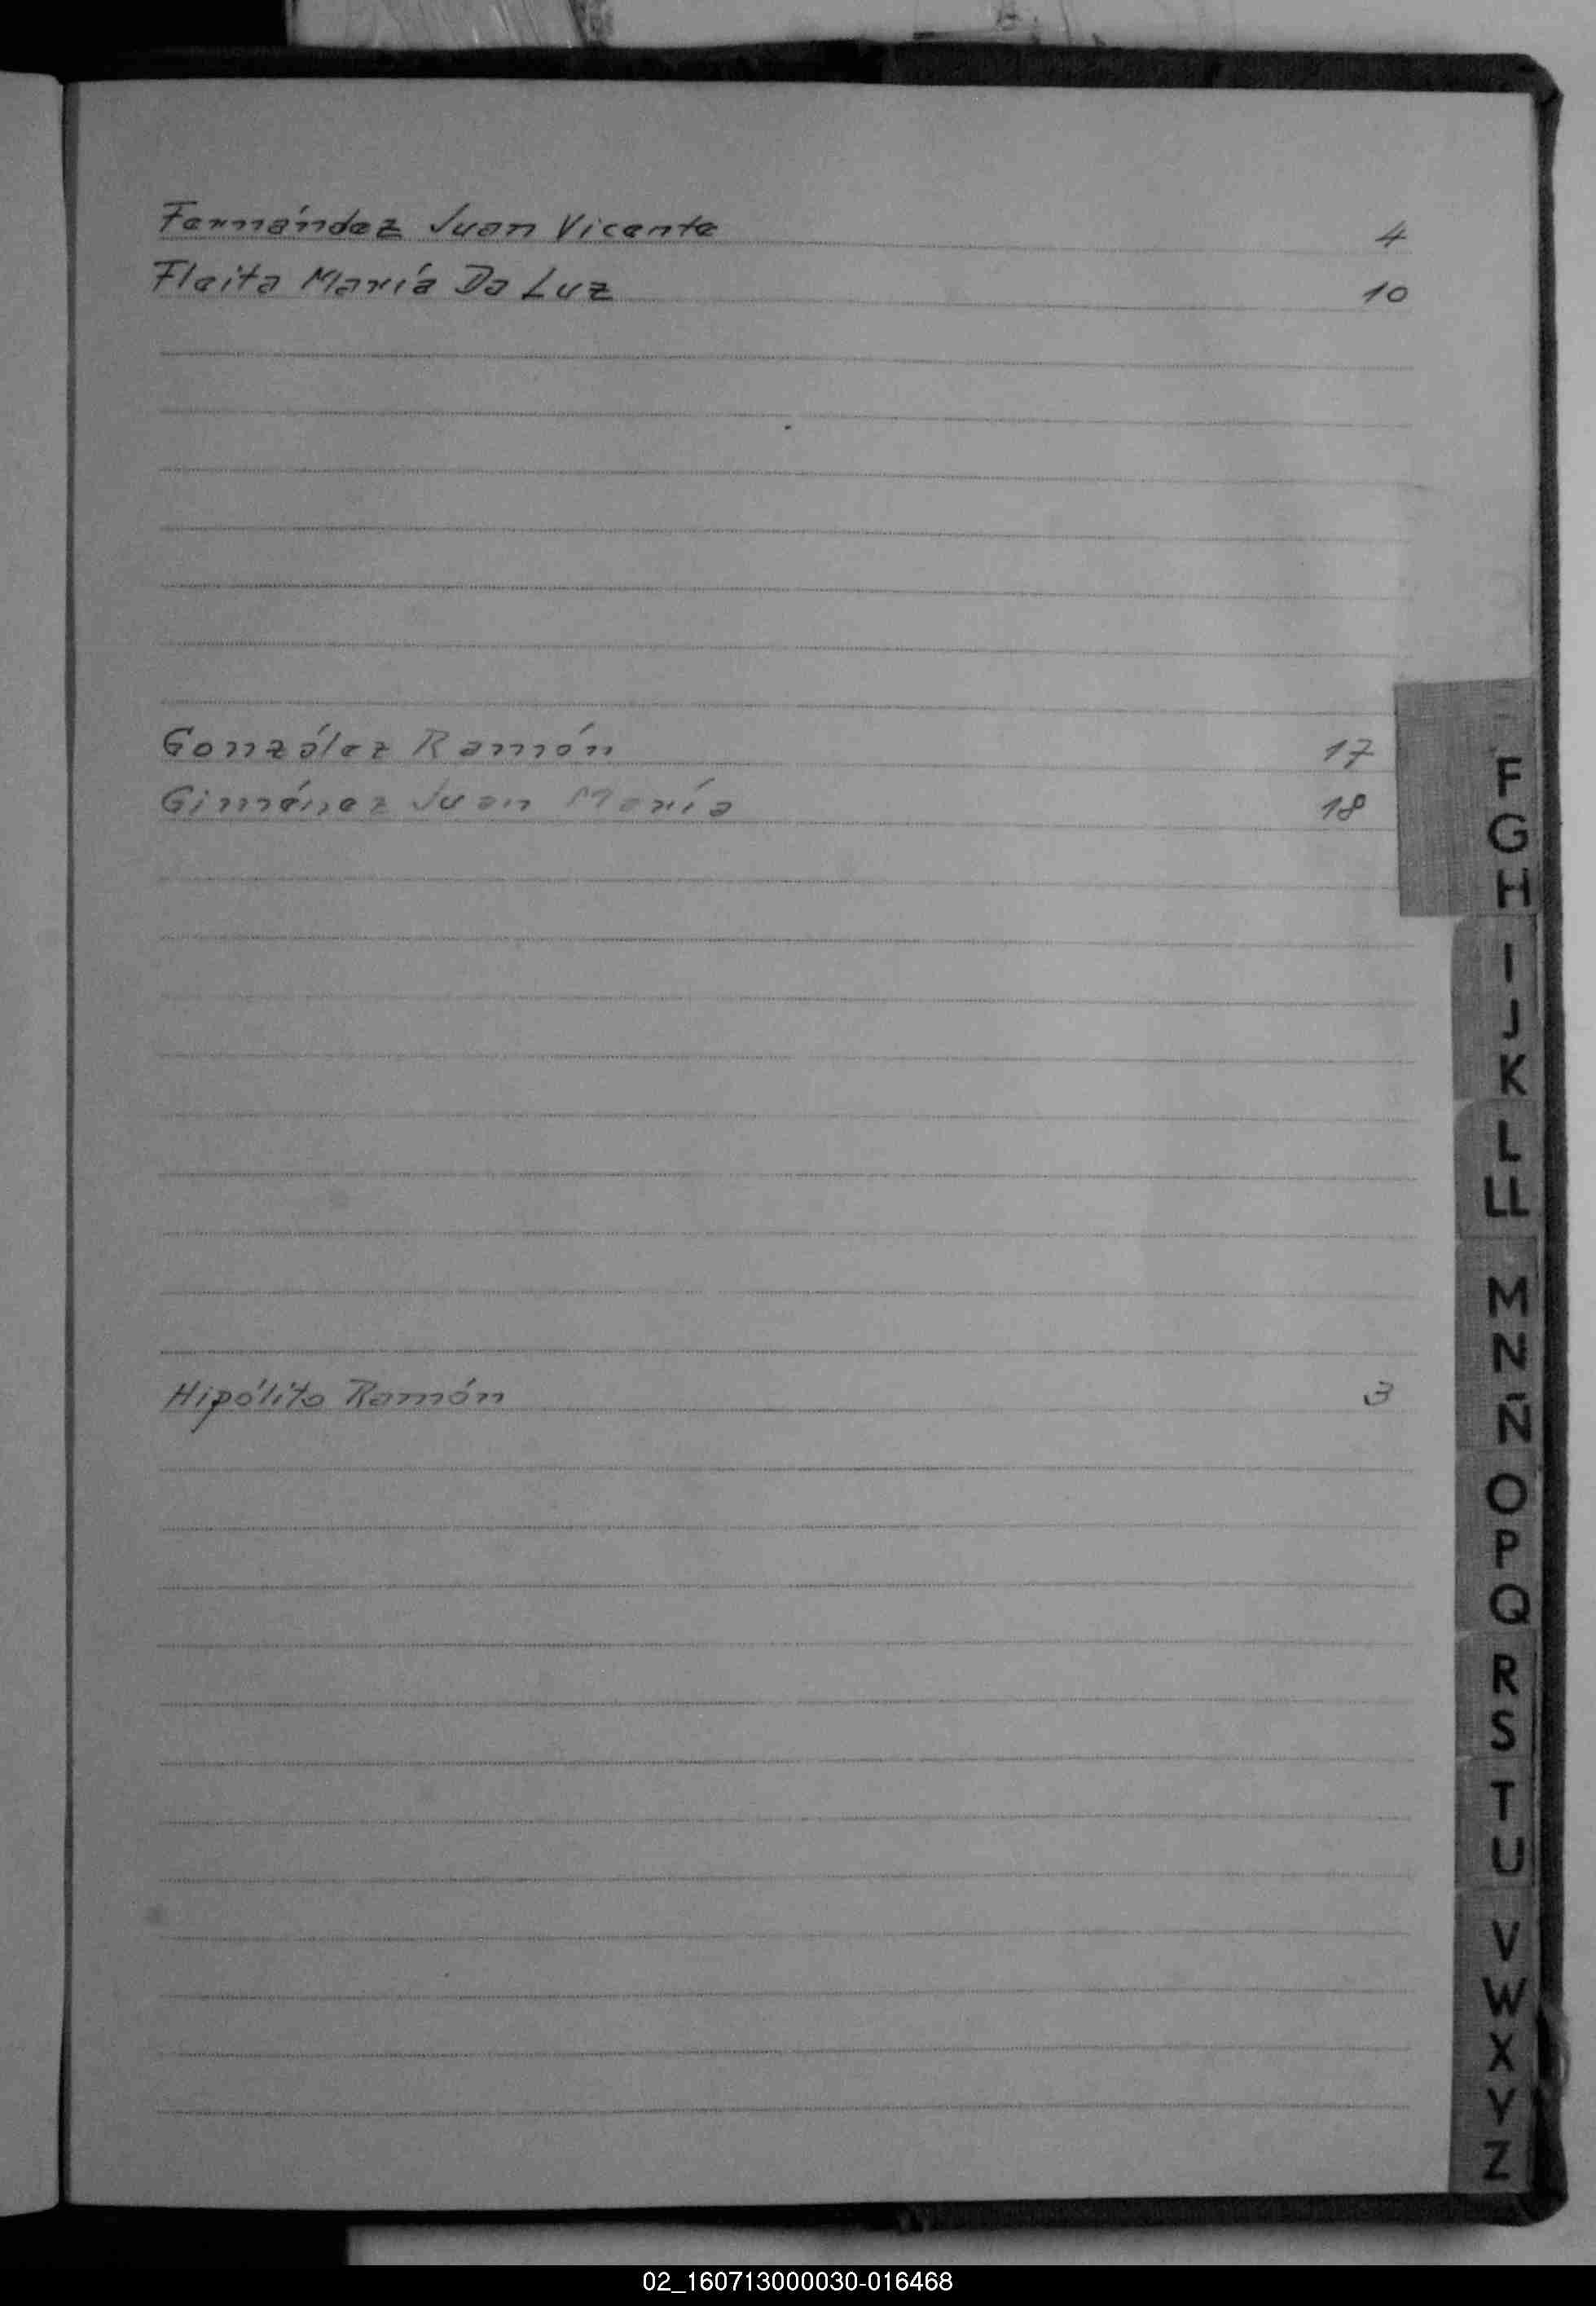 Fernández Juan Vicente 4
Fleita María Da Luz 10
González Ramón 17
Giménez Juan María 18
Hipólito Ramón 3
F
G
H
I
J
K
L
LL
M
N
Ñ
O
P
Q
R
S
T
U
V
W
X
Y
Z
02_160713000030-016468